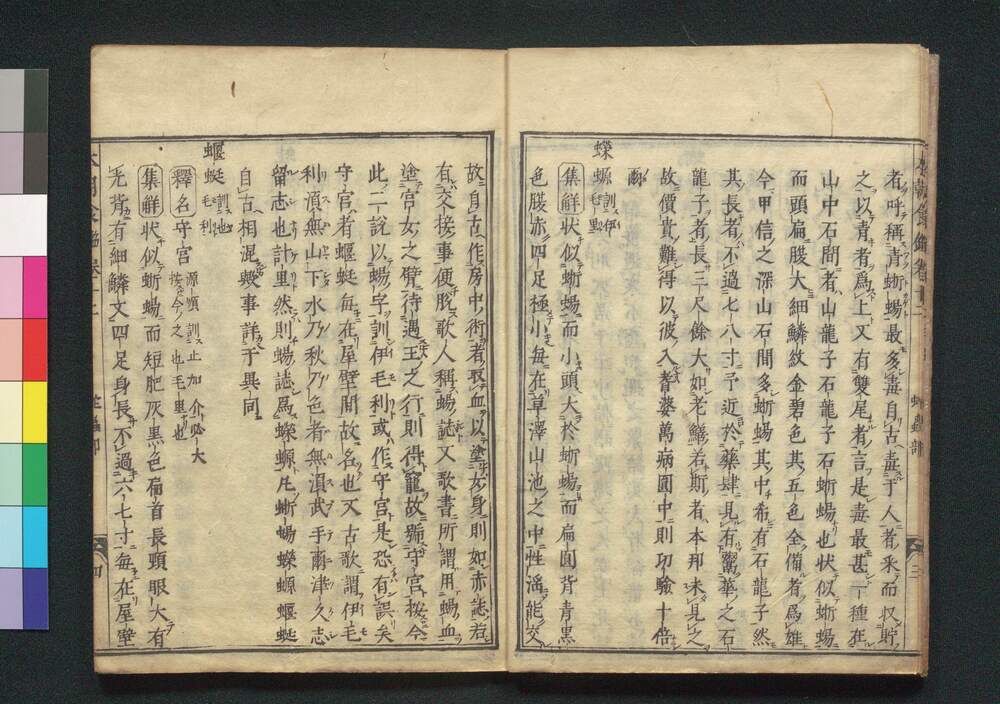 者呼稱青蜥蜴最多毒自古毒于人者采而収貯
之以青者爲上又有雙尾者言是毒最甚一種在
山中石間者山龍子石龍子石蜥蜴也状似蜥蜴
而頭扁腹大細鱗紋金碧色其五色全備者爲雄
今甲信之深山石間多蜥蜴其中希有石龍子然
其長者不過七八寸予近於藥肆見有鬻華之石
龍子者長三尺餘大如老鱔若斯者本邦未見之
故價貴難得以彼入耆婆萬病圓中則功驗十倍
爾
蠑螈 訓伊毛里
集觧 状似蜥蜴而小頭大於蜥蜴而扁圓背青黒
色腹赤四足極小毎在草澤山池之中性滛能交
故自古作房中術者取血以塗女身則如赤誌若
有交接事便脱歌人稱蜴誌又歌書所謂用蜴血
塗官女之臂待遇王之行則得寵故號守宮按今
此二説以蜴字訓伊毛利或作守宮是恐有誤矣
守宮者蝘蜓毎在屋壁間故名也又古歌謂伊毛
利湏無山下水乃秋乃色者無湏武手爾津久志
留志也計里然則蜴誌爲蠑螈凡蜥蜴蠑螈蝘蜓
自古相混幾事詳于異同
蝘蜓 訓也毛利
釋名 守宮
集觧 状似蜥蜴而短肥灰黒色扁首長頸眼大有
光背有細鱗文四足身長不過六七寸毎在屋壁
三
四